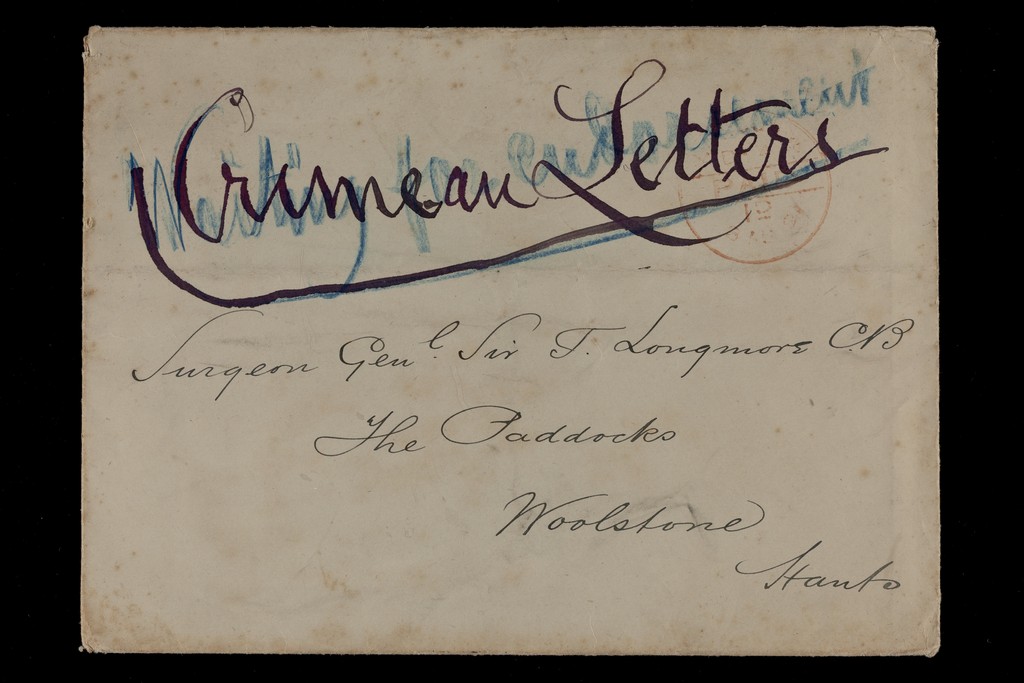 Crimean Letters
Surgeon Genl. Sir T. Longmore CB
The Paddocks
Woolstone
Hants